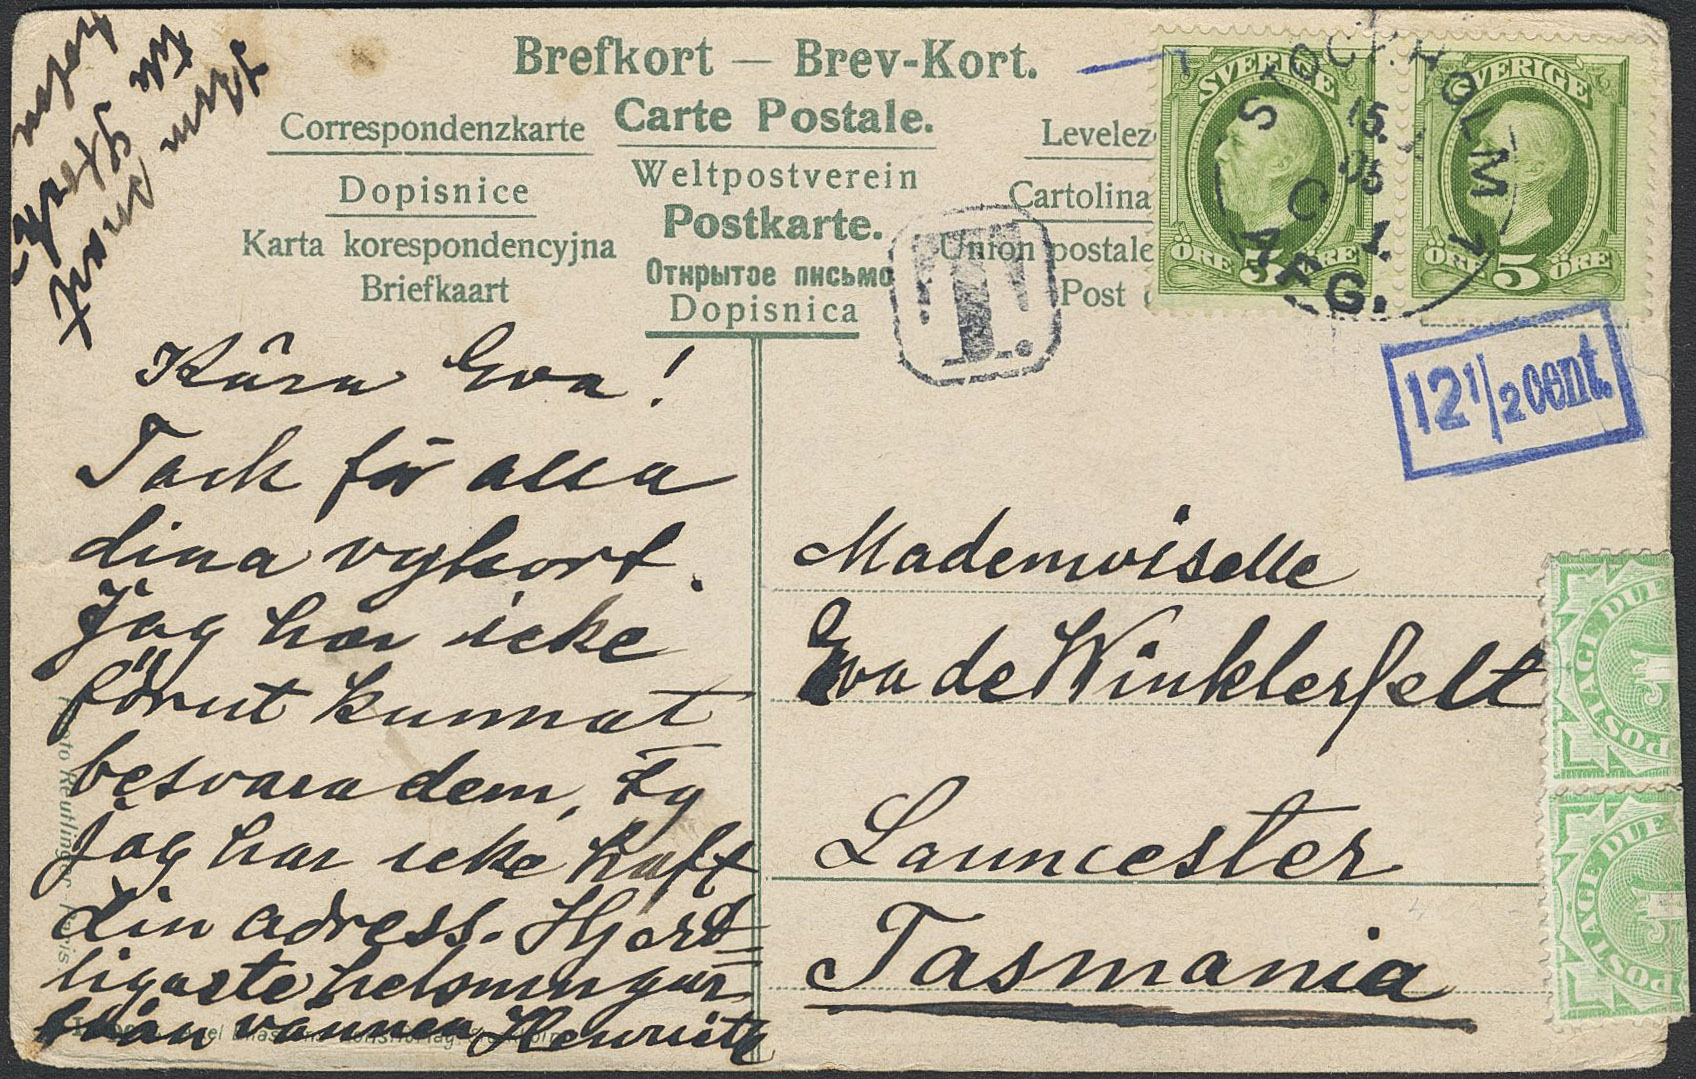 Brefkort — Brev-Kort.
Correspondenzkarte
Carte Postale.
Levelez
Dopisnice
Weltpostverein
Cartolina
Karta korespondencyjna
Postkarte.
Union postale
Briefkaart
Открытое письмо
Post
Dopisnica
SVERIGE
ÖRE 5 ÖRE
SVERIGE
ÖRE 5 ÖRE
STOCKHOLM 1
15.
06
C 1.
AFG.
T.
12 1/2 cent.
Kära Eva!
Tack för alla
dina vykort.
Jag har icke
förut kunnat
besvara dem, ty
Jag har icke haft
din adress. Hjert-
ligaste helsningar
från vännen
Mademoiselle
Eva de Winklerfelt
Launcester
Tasmania
POSTAGE DUE
POSTAGE DUE